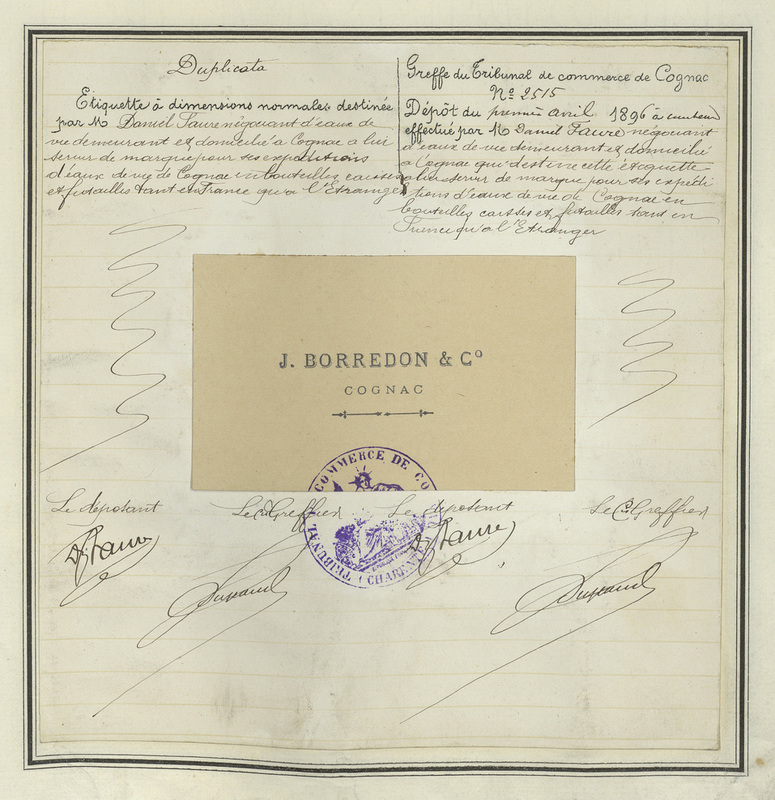 Duplicata
Etiquette à dimensions normales destinée
par M. Daniel Faure négociant d'eaux de
vie demeurant et domicilié à Cognac a lui
servir de marque pour ses expéditions
d'eaux de vie de Cognac en bouteilles, caisses
et futailles tant en France qu'a l'Etranger
Greffe du Tribunal de commerce de Cognac
No 2515
Dépôt du premier avril 1896 à
effectué par Mr Daniel Faure négociant
d'eaux de vie demeurant et domicilié
a Cognac qui destine cette étiquette
a lui servir de marque pour ses expédi
tions d'eaux de vie de Cognac en
bouteilles caisses et futailles tant en
France qu'a l'Etranger
J. BORREDON & Co
COGNAC
TRIBUNAL COMMERCE DE CO
(CHARENTE
Le déposant
Le Cs Greffier
Le déposant
Le Cs Greffier
D. Faure
D. Faure